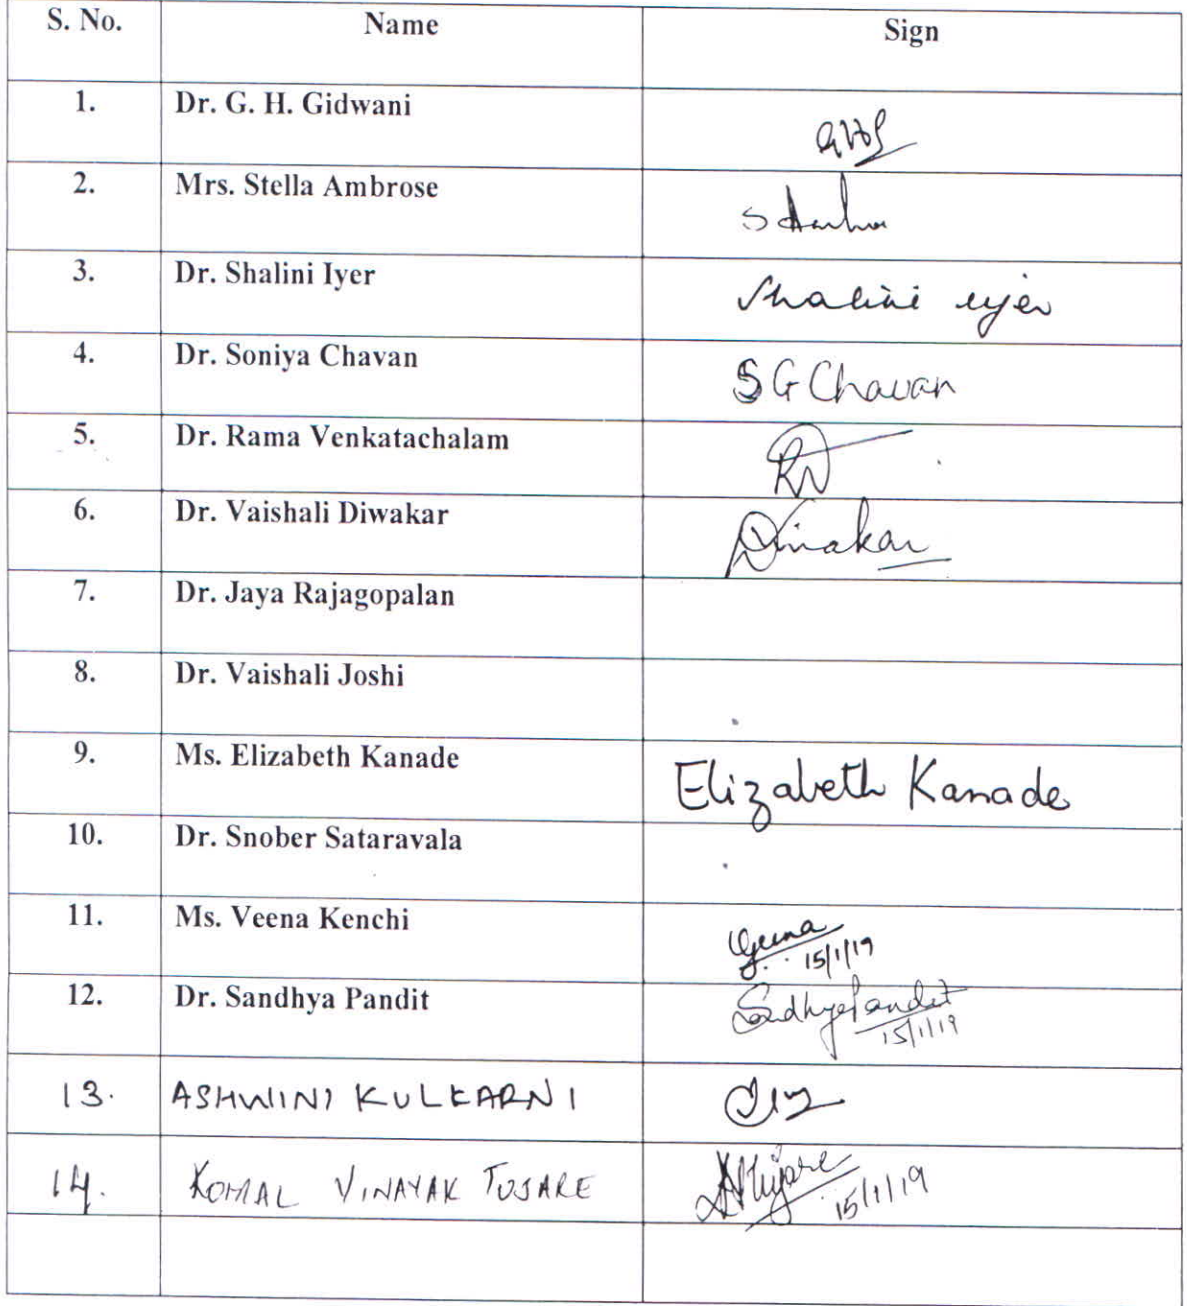 S. No. Name Sign
1. Dr. G. H. Gidwani
2. Mrs. Stella Ambrose
3. Dr. Shalini Iyer Shalini iyer
4. Dr. Soniya Chavan S G Chavan
5. Dr. Rama Venkatachalam
6. Dr. Vaishali Diwakar Diwakar
7. Dr. Jaya Rajagopalan
8. Dr. Vaishali Joshi
9. Ms. Elizabeth Kanade Elizabeth Kanade
10. Dr. Snober Sataravala
11. Ms. Veena Kenchi
15/1/19
12. Dr. Sandhya Pandit Sandhya Pandit
15/1/19
13. ASHWINI KULKARNI
14. KOMAL VINAYAK TUJARE
15/1/19